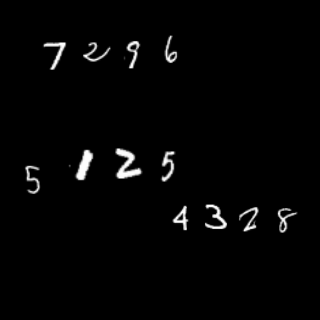 7296
5125
4328